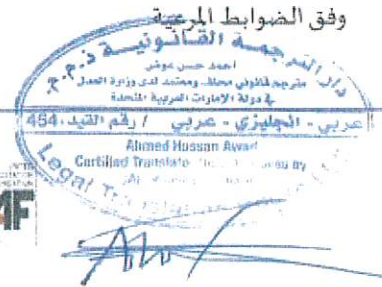 وفق الضوابط المرعية
دار الترجمة القانونية ذ.م.م.
أحمد حسن عوض
مترجم قانوني محلف ومعتمد لدى وزارة العدل
في دولة الامارات العربية المتحدة
عربي - انجليزي - عربي / رقم القيد: 454
Ahmed Hassan Awad
Certified Translator
by
Legal
AF